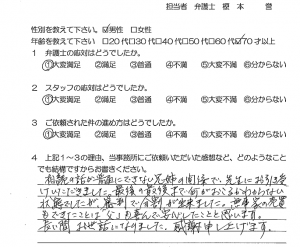 担当者 弁護士 榎本 誉
性別を教えて下さい。☑男性 □女性
年齢を教えて下さい □20代□30代□40代□50代□60代☑70才以上
1 弁護士の応対はどうでしたか。
①大変満足 ②満足 ③普通 ④不満 ⑤大変不満 ⑥分からない
2 スタッフの応対はどうでしたか。
①大変満足 ②満足 ③普通 ④不満 ⑤大変不満 ⑥分からない
3 ご依頼された件の進め方はどうでしたか。
①大変満足 ②満足 ③普通 ④不満 ⑤大変不満 ⑥分からない
4 上記1~3の理由、当事務所にご依頼いただいた感想など、どのようなこと
でも結構ですからお書きください。
相続の話が普通にできない兄姉の関係で、先生にお引き受
けいただきました。最後の最後まで何がおこるかわからない
状態でしたが、審判で分割が出来ました。
もできたことは父も喜んで安心したことと思います。
長い間お世話になりました。感謝申し上げます。